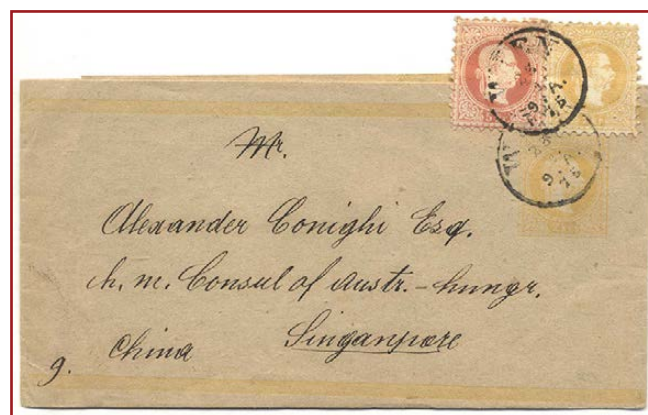 Mr.
Alexander Conighi Esq.
h. m. Consul of Austr. - hungr.
China Singanpore
g.